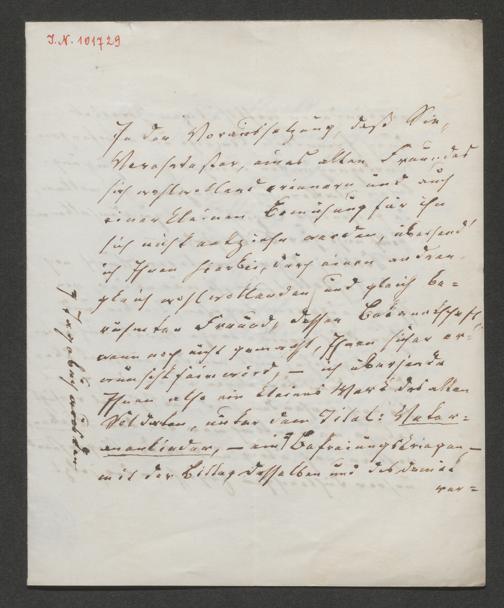 I. N. 101729
In der Voraussetzung, daß Sie,
Verehrtester, eines alten Freundes
sich wohlwollend erinnern und auch
einer kleinen Bemühung für ihn
sich nicht entziehn werden, übersend'
ich Ihnen hierbei, durch einen andern
gleich wohlwollenden und gleich be-
rühmten Freund, dessen Bekanntschaft,
wenn noch nicht gemacht, Ihnen sicher er-
wünscht sein wird, — ich übersende
Ihnen also ein kleines Werk des alten
Soldaten, unter dem Titel:
— ein Befreiungskriegen, —
mit der Bitte, dasselbe und
ver=